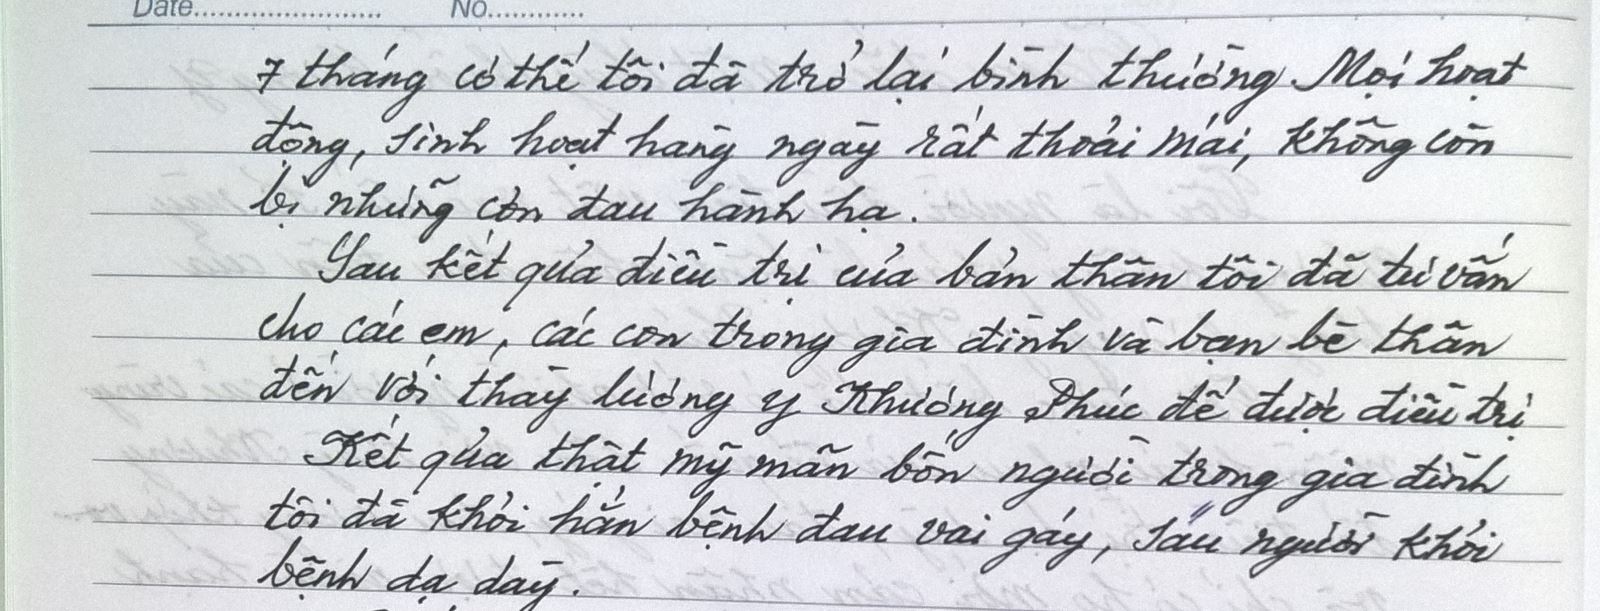 Date....................... No............
7 tháng có thể tôi đã trở lại bình thường Mọi hoạt
động, sinh hoạt hàng ngày rất thoải mái, không còn
bị những cơn đau hành hạ.
Sau kết qủa điều trị của bản thân tôi đã tư vấn
cho các em, các con trong gia đình và bạn bè thân
đến với thầy lương y Khương Phúc để được điều trị
Kết qủa thật mỹ mãn bốn người trong gia đình
tôi đã khỏi hẳn bệnh đau vai gáy, sáu người khỏi
bệnh dạ dày.